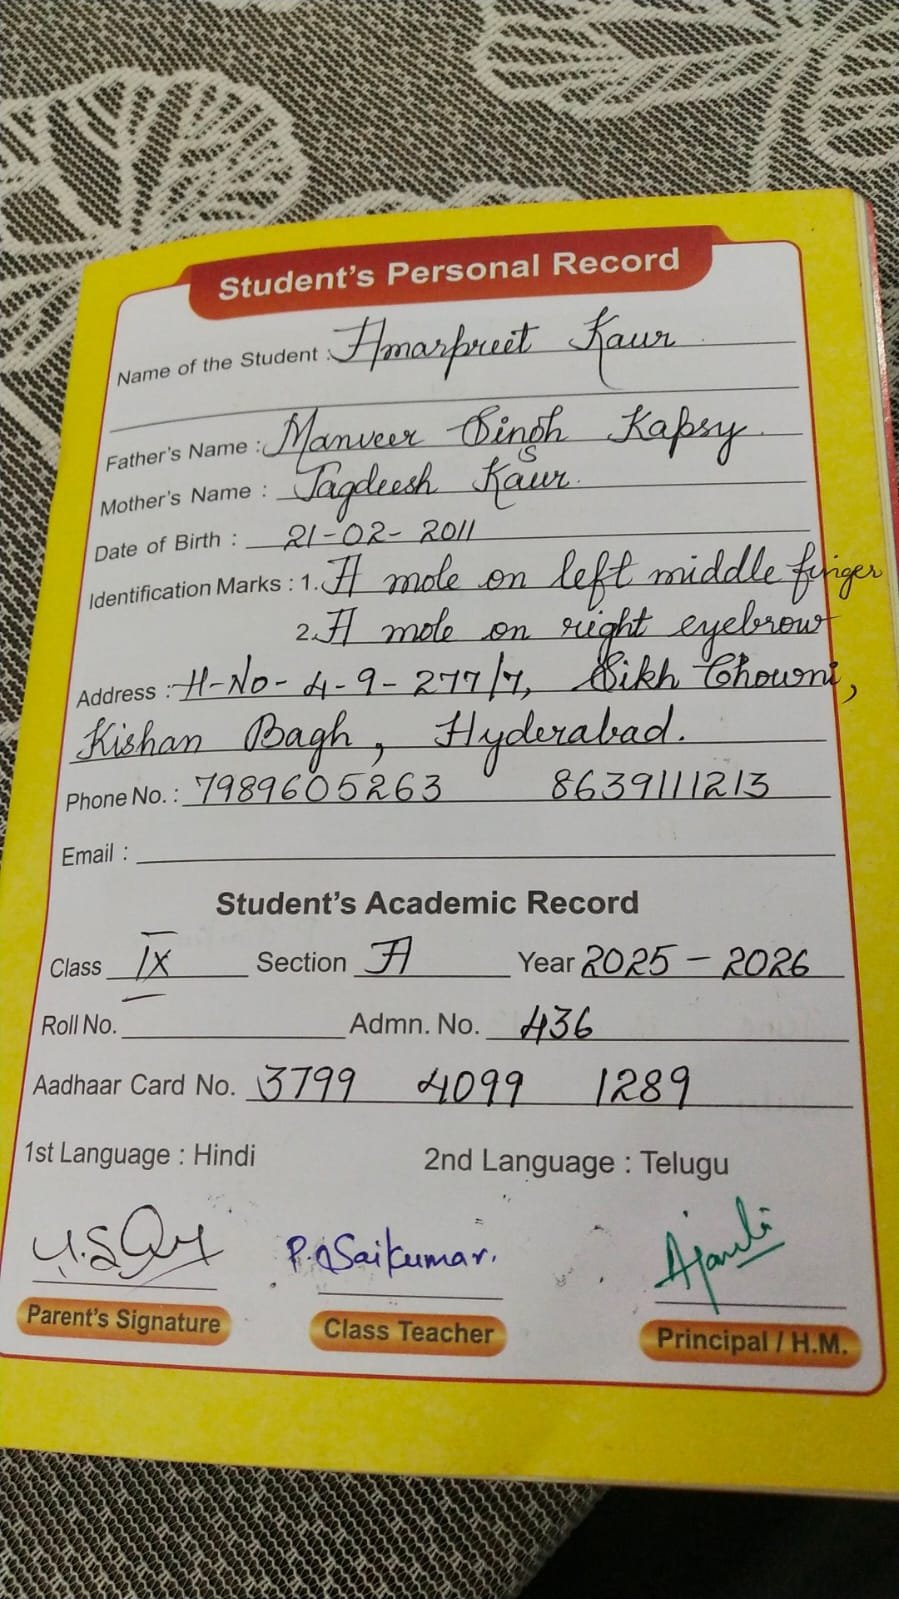 Student's Personal Record
Name of the Student : Amarpreet Kaur
Father's Name : Manveer Singh Kapsy
Mother's Name : Jagdeesh Kaur.
Date of Birth : 21-02-2011
Identification Marks : 1. A mole on left middle finger
2. A mole on right eyebrow
Address : H-No-4-9-277/7, Sikh Chowni,
Kishan Bagh, Hyderabad.
Phone No. : 7989605263 8639111213
Email :
Student's Academic Record
Class IX Section A Year 2025-2026
Roll No. Admn. No. 436
Aadhaar Card No. 3799 4099 1289
1st Language : Hindi 2nd Language : Telugu
P. Saikumar.
Parent's Signature Class Teacher Principal / H.M.